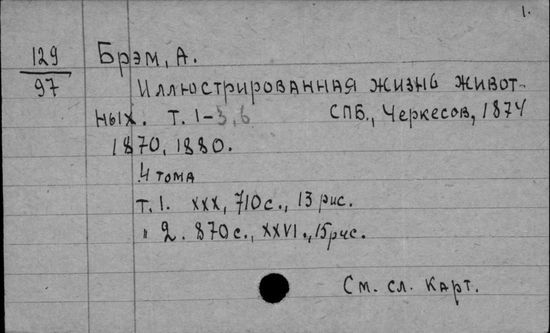 1.
129
97
Брэм, А.
Иллюстрированная жизнь живот-
ных. Т. 1-3, 6 СПБ., Черкесов, 1874
1870, 1880.
4 тома
т. 1. XXX, 710 с., 13 рис.
" 2. 870 с., XXVI., 15 рис.
См. сл. карт.